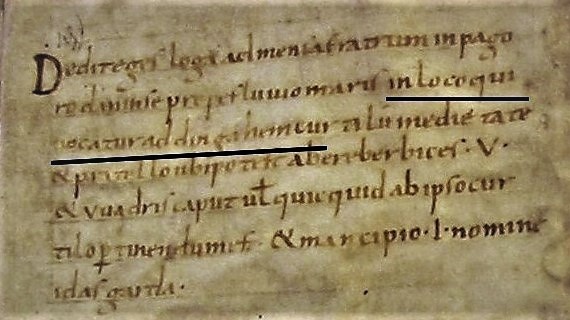 Dedit egesloga ad mensa fratrum in pago
rodininse prope fluuio maris in loco qui
uocatur ad dingahem curtilu medietate
& pratello ubi potest habere berbices · V ·
& vuadriscaput uł quicquid ab ipso cur
tilo ꝑtinendum est · & mancipio · I · nomine
idasgarda ·